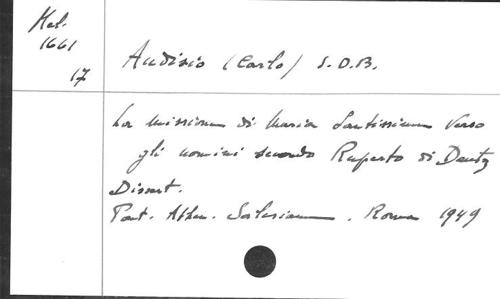 Mel.
1661
17
Audisio (Carlo) S.D.B.
La missione di Maria Santissima verso
gli uomini secondo Ruperto di Deutz
Dissert.
Pont. Athen. Salesianum. Roma 1949